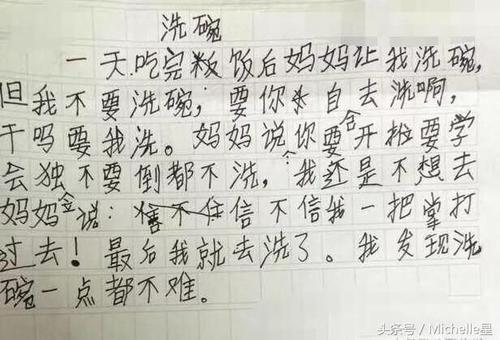 洗碗
一天.吃完粄饭后妈妈让我洗碗,
但我不要洗碗,要你亲自去洗啊,
干吗要我洗。妈妈说你要合开始要学
会独不要倒都不洗,个我还是不想去
妈妈金说:信不信我一把掌打
过去!最后我就去洗了。我发现洗
碗一点都不难。
头条号 / Michelle星